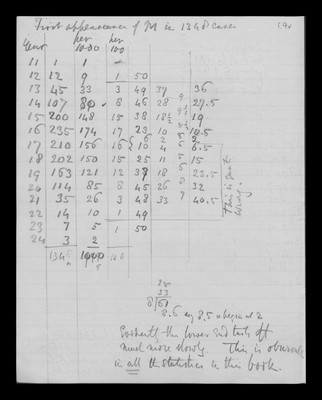 First appearance of M in 1348 cases
Years per 1000 per 100
11 1 1 –
12 12 9 1 50
13 45 33 3 49 37 36
14 107 80 8 46 28 9 27.5
15 200 148 15 38 18½ 19
16 235 174 17 23 10 10.5
17 210 156 16 6 2 2
18 202 150 15 25 11 15
19 163 121 12 37 18 23.5
20 114 85 8 45 26 32
21 35 26 3 48 33 40.5
22 14 10 1 49
23 7 5 1 50
24 3 2
1348 1000 100
This is the wrong
35
33
8|68
8.6 say 8.5 
Evidently the lower end tails off
much more slowly. This is observable
in all the statistics in this book.